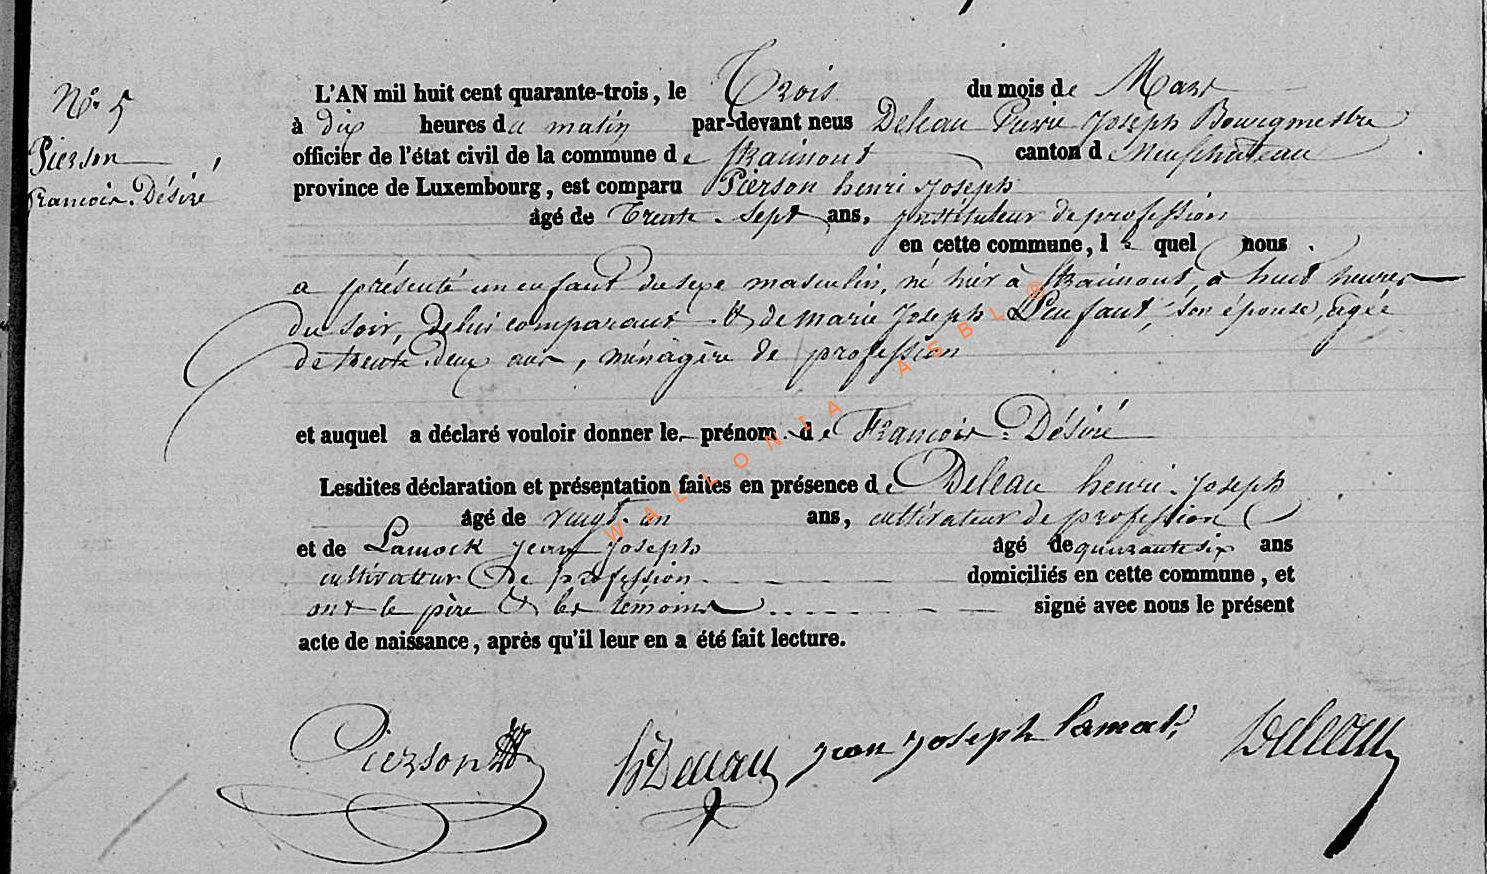 N° 5
Pierson
François-Désiré
L'AN mil huit cent quarante-trois, le Trois du mois de Mars
à dix heures du matin par-devant nous Deleau Pierre Joseph Bourgmestre
officier de l'état civil de la commune de Straimont canton de Neufchateau
province de Luxembourg, est comparu Pierson henri Joseph
âgé de Trente-Sept ans, instituteur de profession
en cette commune, lequel nous
a présenté un enfant du sexe masculin, né hier à Straimont, à huit heures
du soir, de lui comparant & de marie Joseph Lenfant, son épouse, agée
de trente-deux ans, ménagère de profession
et auquel a déclaré vouloir donner le prénom de François-Désiré
Lesdites déclaration et présentation faites en présence de Deleau henri-Joseph
âgé de vingt-un ans, cultivateur de profession
et de Lamock Jean Joseph âgé de quarante six ans
cultivateur de profession domiciliés en cette commune, et
ont le père & les témoins signé avec nous le présent
acte de naissance, après qu'il leur en a été fait lecture.
Pierson hDeleau jean joseph lamok Deleau
WALLONIA ASBL ®